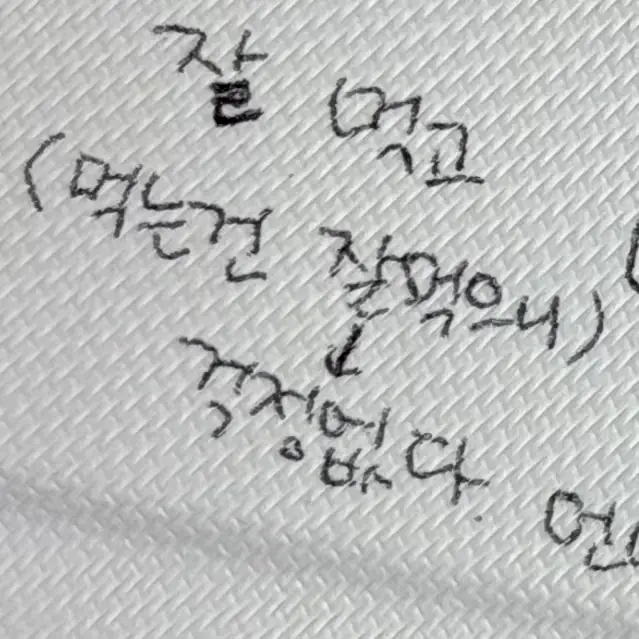 잘 먹고
(먹는건 잘먹으니)
↓
걱정없다.